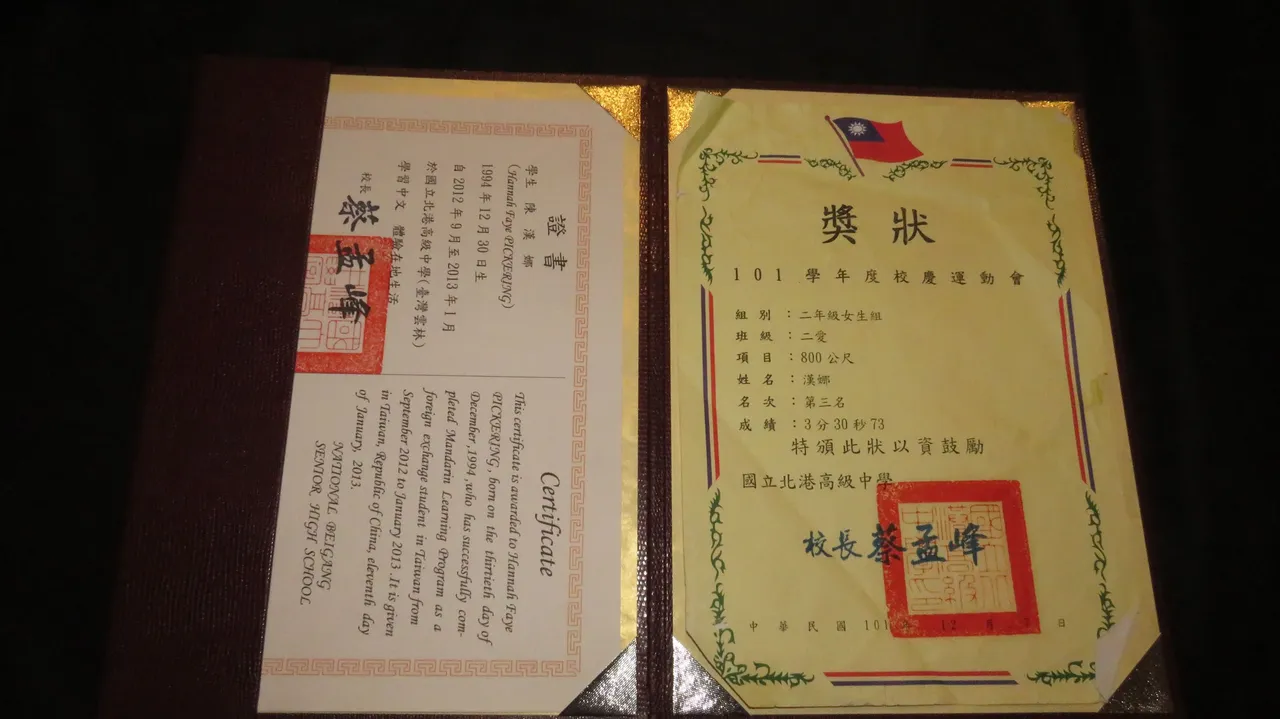 證書
學生 陳漢娜
(Hannah Faye PICKERING)
1994 年 12 月 30 日生
自 2012 年 9 月至 2013 年 1 月
於國立北港高級中學(臺灣雲林)
學習中文 體驗在地生活
校長 蔡孟峰
Certificate
This certificate is awarded to Hannah Faye
PICKERING , born on the thirtieth day of
December ,1994 ,who has successfully com-
pleted Mandarin Learning Program as a
foreign exchange student in Taiwan from
September 2012 to January 2013 .It is given
in Taiwan, Republic of China, eleventh day
of January, 2013.
NATIONAL BEIGANG
SENIOR HIGH SCHOOL
獎狀
101 學年度校慶運動會
組別：二年級女生組
班級：二愛
項目：800 公尺
姓名：漢娜
名次：第三名
成績：3 分 30 秒 73
特頒此狀以資鼓勵
國立北港高級中學
校長 蔡孟峰
中華民國 101 年 12 月 日